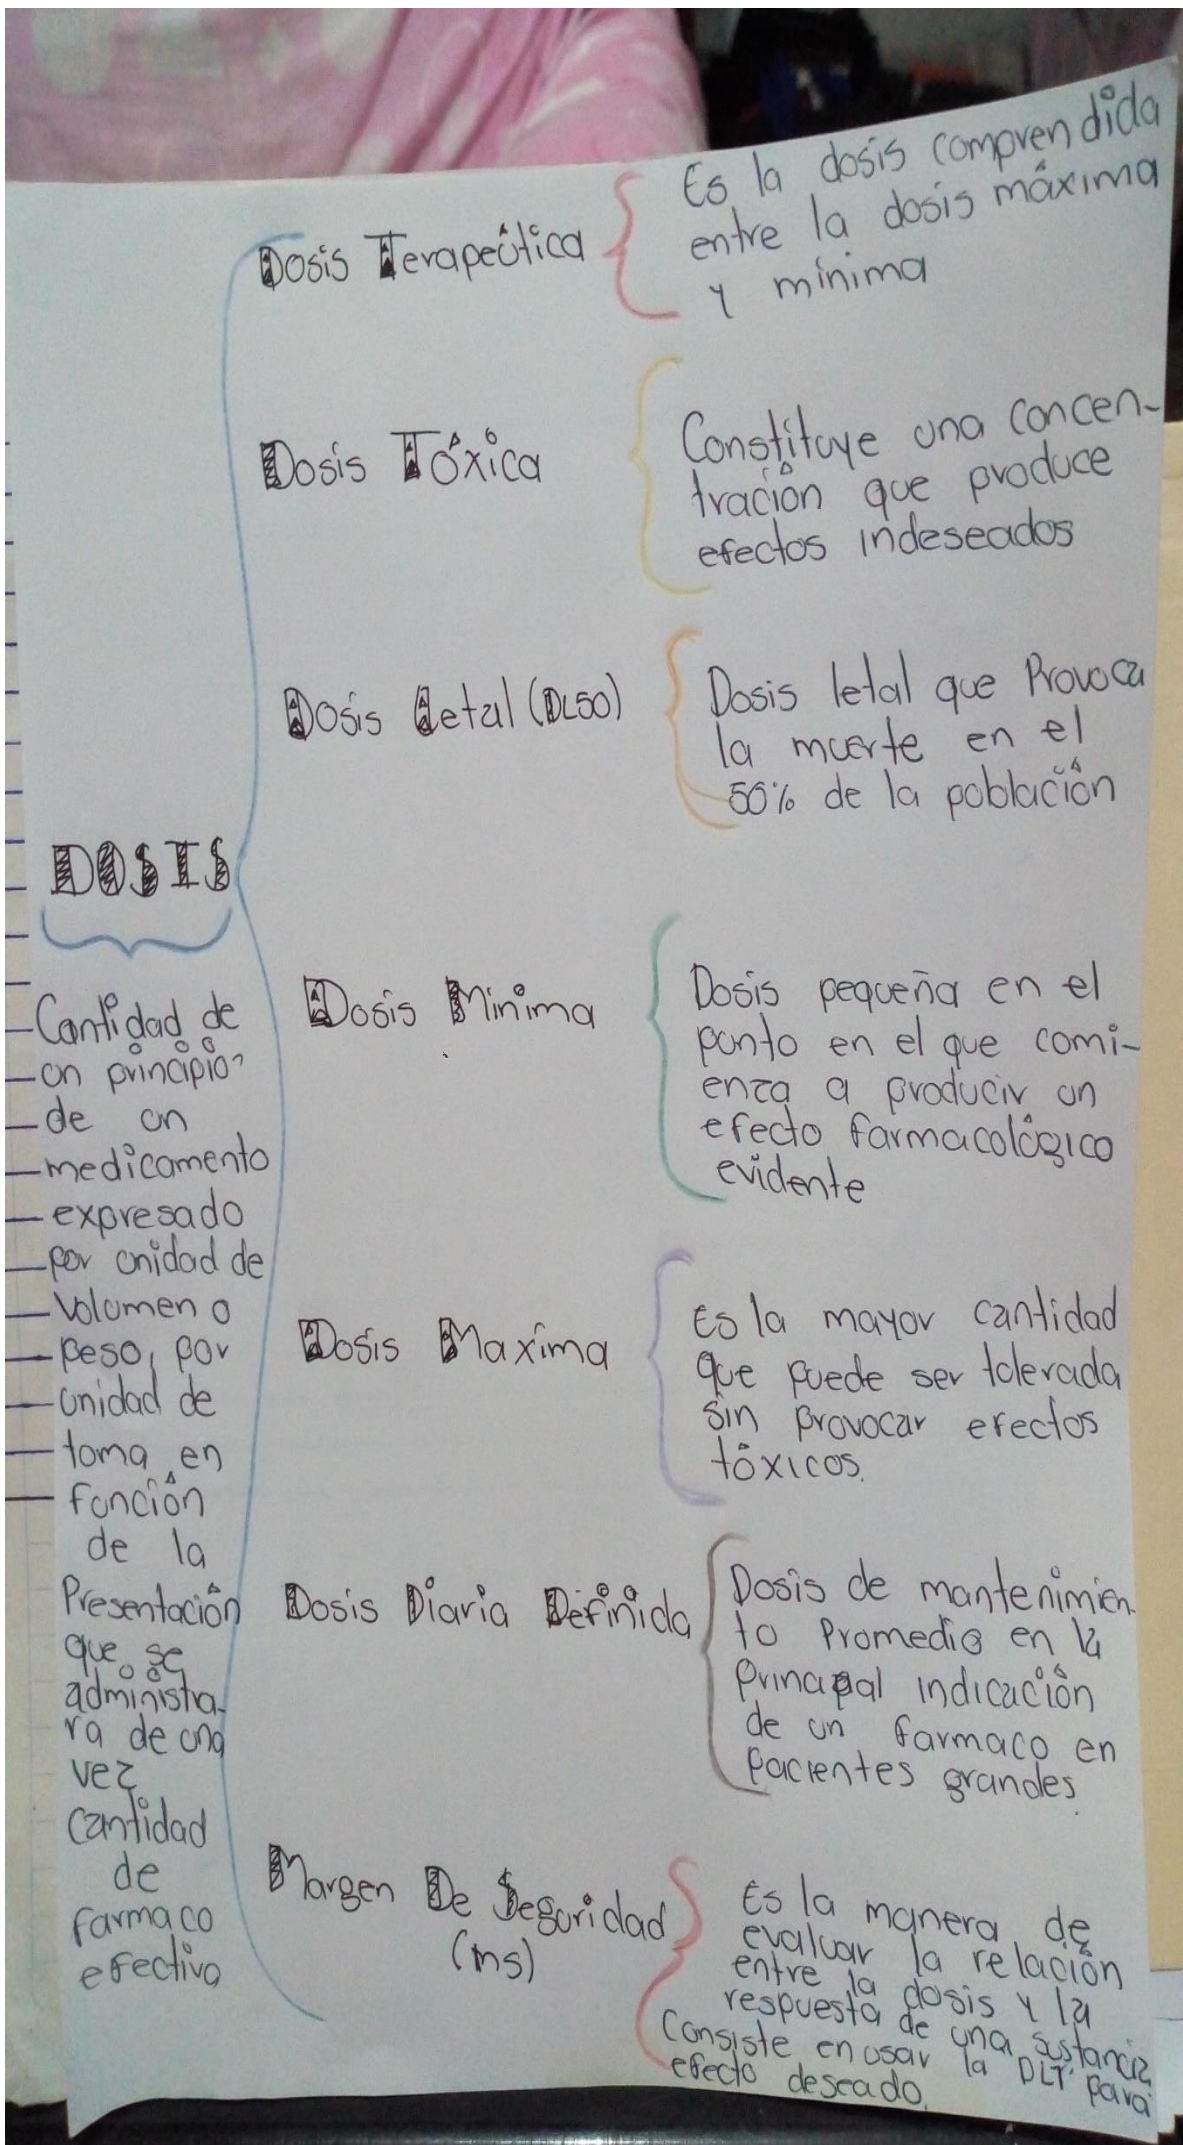 DOSIS
Cantidad de
un principio
de un
medicamento
expresado
por unidad de
volumen o
peso, por
unidad de
toma en
función
de la
Presentación
que se
administra-
ra de una
vez
cantidad
de
farmaco
efectiva
Dosis Terapeútica
Es la dosis comprendida
entre la dosis máxima
y mínima
Dosis Tóxica
Constituye una concen-
tración que produce
efectos indeseados
Dosis Letal (DL50)
Dosis letal que Provoca
la muerte en el
50% de la población
Dosis Minima
Dosis pequeña en el
punto en el que comi-
enza a producir un
efecto farmacológico
evidente
Dosis Maxima
Es la mayor cantidad
que puede ser tolerada
sin provocar efectos
tóxicos.
Dosis Diaria Definida
Dosis de mantenimien-
to Promedio en la
Principal indicación
de un farmaco en
pacientes grandes.
Margen De Seguridad
(ms)
Es la manera de
evaluar la relación
entre la dosis y la
respuesta de una sustancia
Consiste en usar la DLT para
efecto deseado.